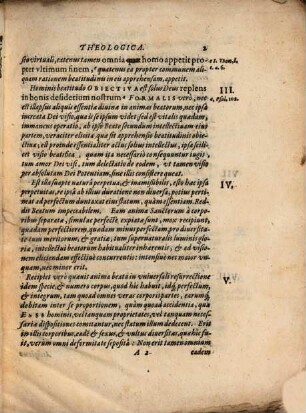 THEOLOGICA. 2
tio virtuali, et tamen tamen omnia quæ homo appetit pro-
pter vltimum finem, quatenus ea propter communem ali-
quam rationem beatitudini in eis apprehensam, appetit.
Hominis beatitudo OBIECTIVA est solus Deus replens
in bonis desiderium nostrum: FORMALIS verò, nec
est illapsus aliquis essentiæ diuinæ in animam eorum, nec ipsa
increata Dei visio, qua is se ipsum videt sed est vitalis quædam,
immanens operatio, ab ipso Beato secundum intellectiuam eius
partem, veraciter elicita: quo ipse apprehendit bonum essentia-
liter beatificum, proinde est essentialiter actus solius intellectus, ipsa sci-
licet visio beatifica, quam licet necessariò consequantur iugis,
tum amor Dei visi, tum delectatio de eodem, vt tamen visio
per absolutam Dei Potentiam, sine illis consistere queat.
Est illa suapte natura perpetua, & inamissibilis, esto hæc ipsa
perpetuitas, è quâ ab illius duratione men diuersa, potius perti-
neat ad perfectum duntaxat eius statum, quàm essentiam. Red-
dit Beatum impeccabilem. Eam animæ Sanctorum à cor-
poribus separatæ, simulac perfectè expiatæ sunt, mox recipiunt,
quædam perfectiorem, quædam minus perfectam pro diuersita-
te tum meritorum, & gratiæ, tum supernaturalis luminis glo-
riæ, intellectui beatorum habitualiter inhærentis, & ad visio-
nem eliciendam effectiuè concurrentis: intensiuè nec maior vn-
quam, nec minor erit.
Recipiet verò quæuis anima beata in vniuersali resurrectione
idem specie, & numero corpus, quod hic habuit, idq́; perfectum,
& integrum, tam quoad omnes veras corporis partes, earumq́;
debitam inter se proportionem, quàm quoad accidentia, quæ
ESSE hominis, vel tanquam proprietates, vel tanquam neces-
sariæ dispositiones constantur, nec statum illum dedecent. Erit
in illis corporibus, eadē & sexus, & vultus diuersitas, quæ hic
fuit, verùm omni deformitate seposita: Non erit tamen omnium
A 2 eadem
III.
IV.
V.